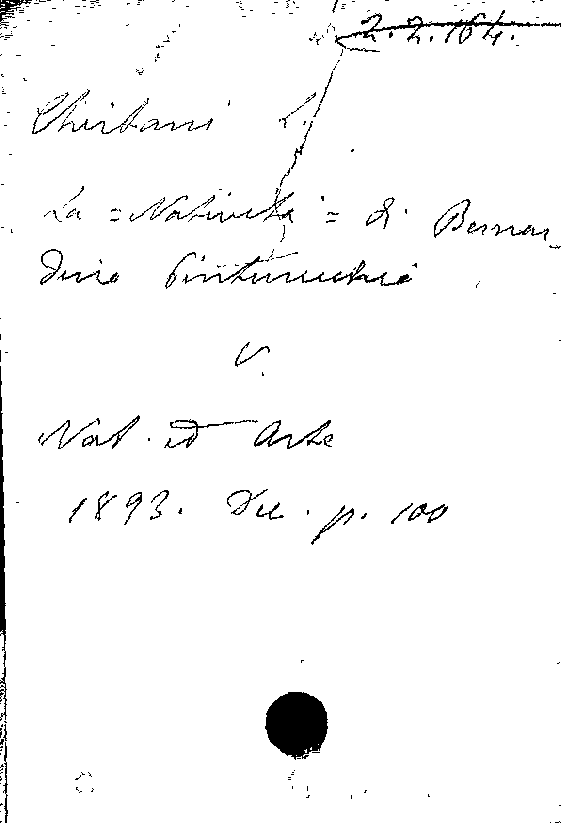 2.2.164.
Chirtani L.
La =Natività= di Bernar-
dino Pinturicchio
V.
Nat. ed Arte
1893. Dic. p. 100